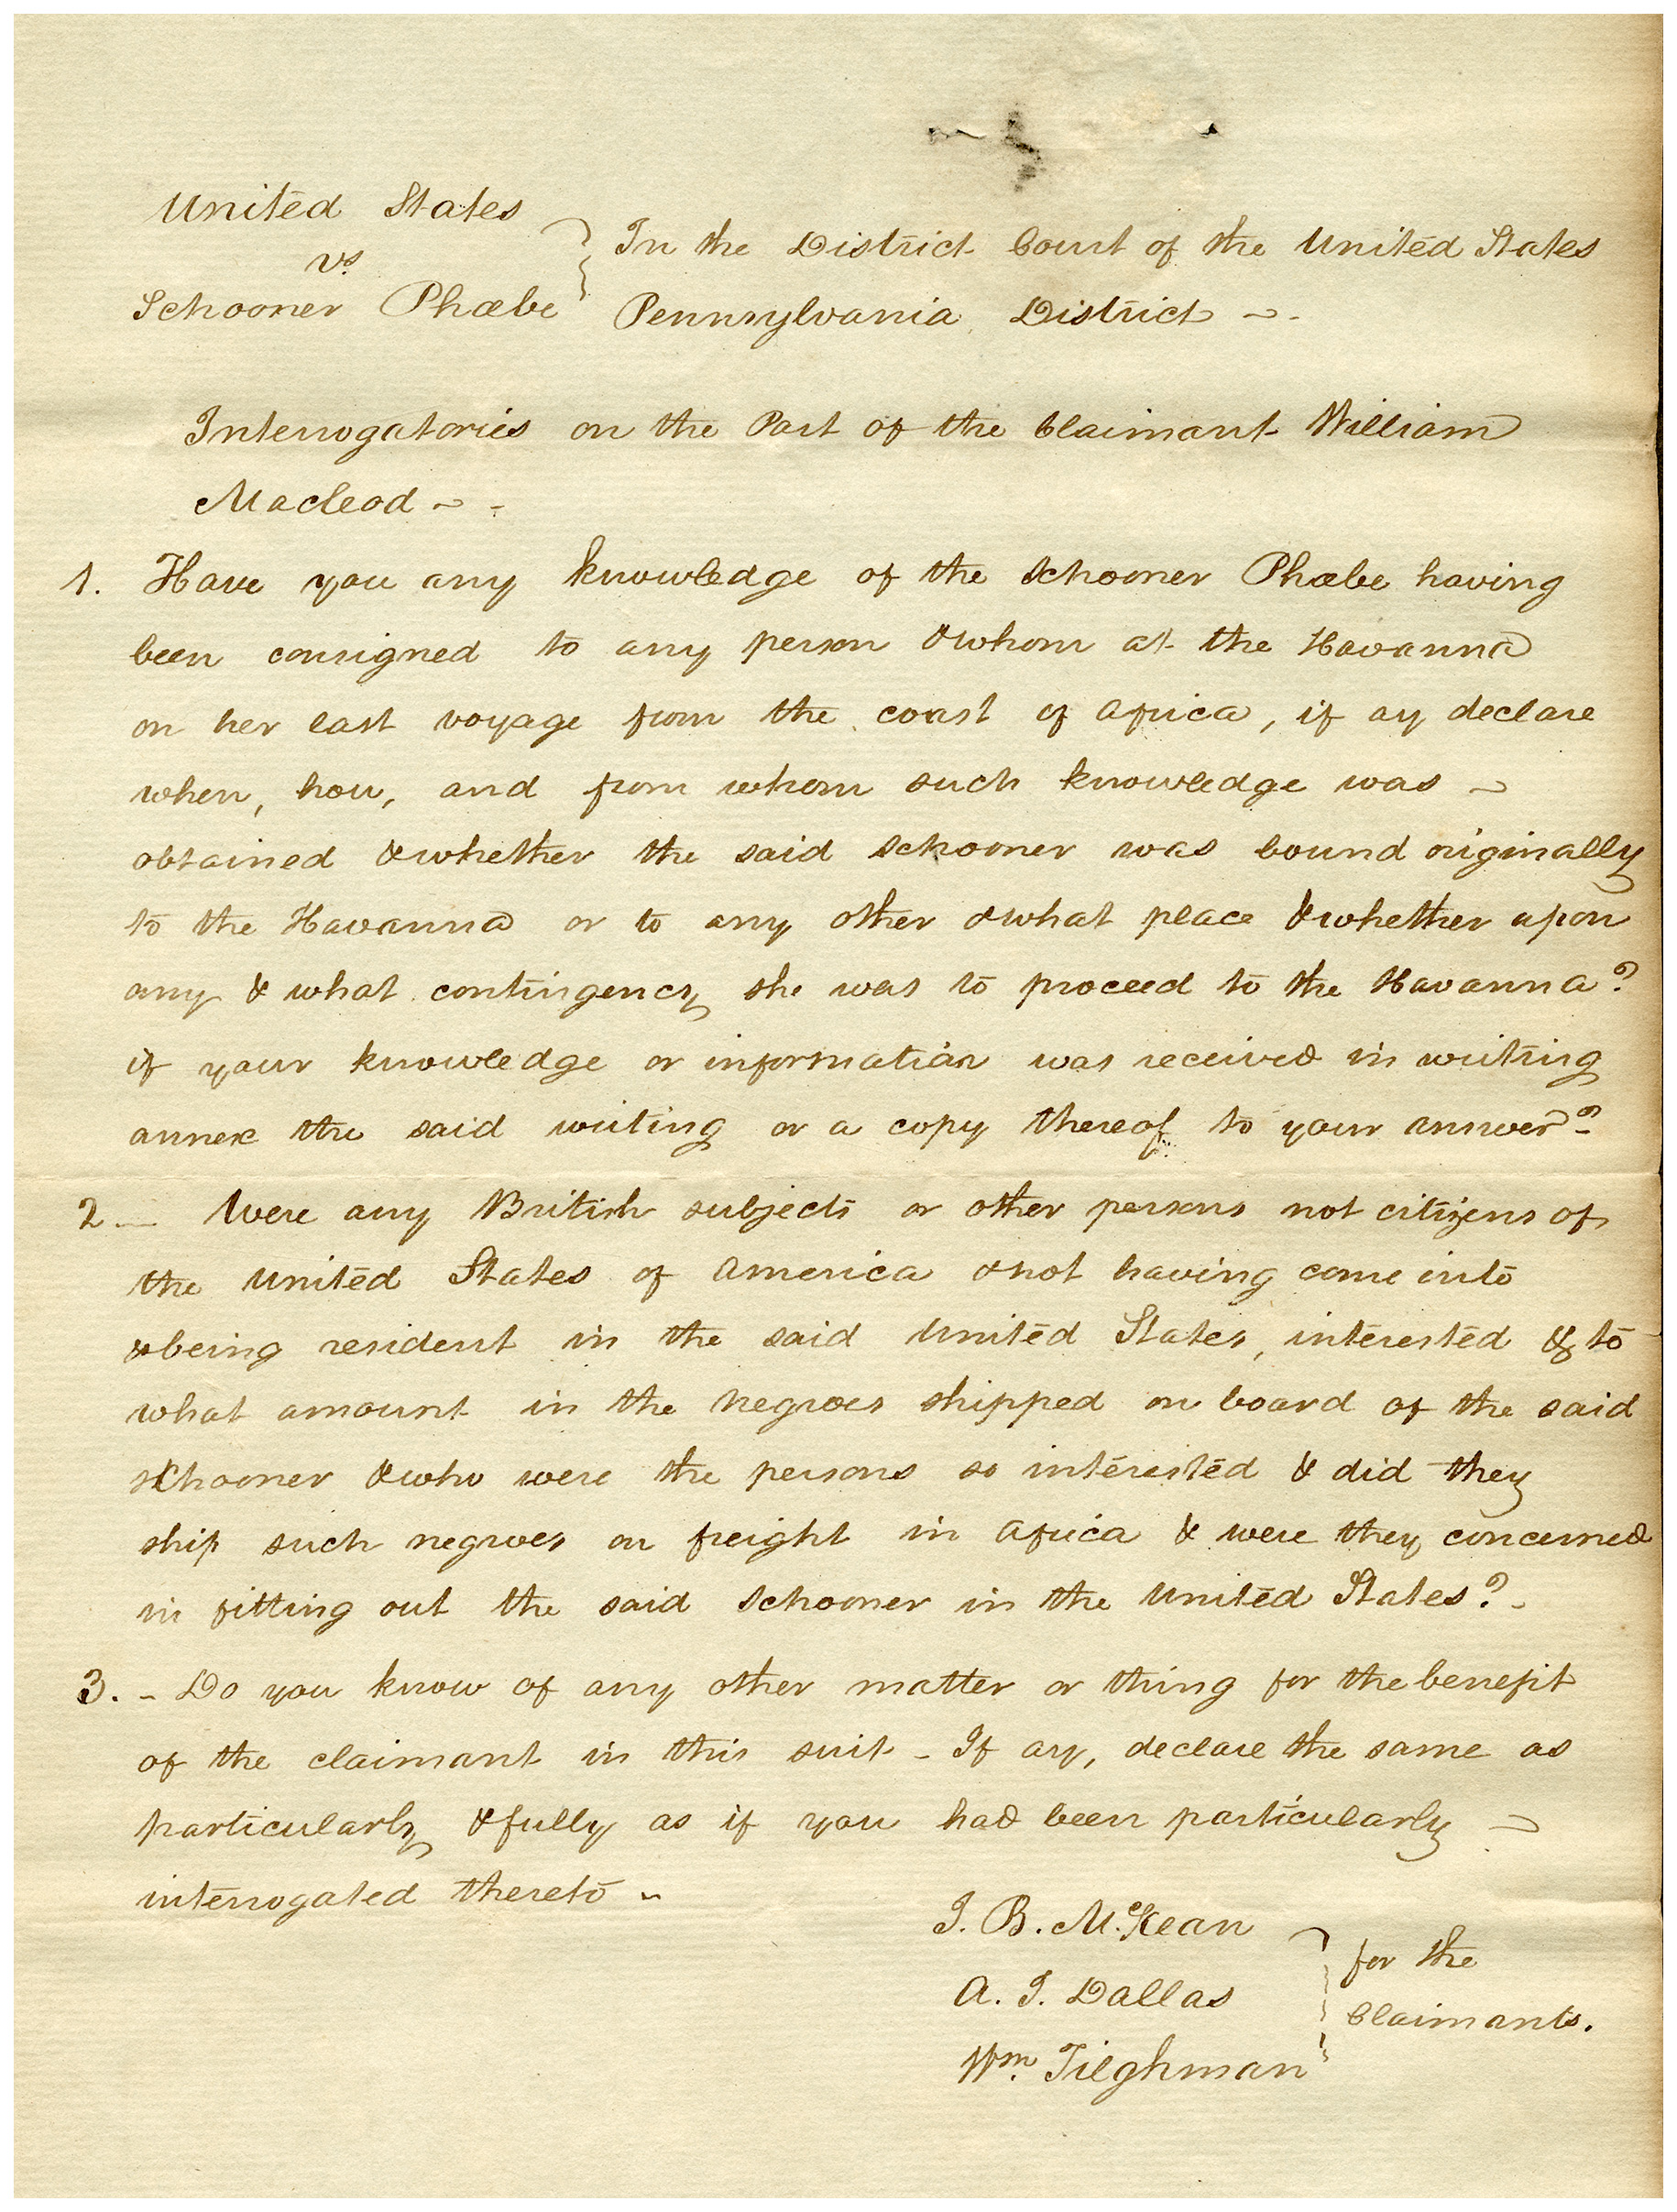 United States
vs
Schooner Phœbe
In the District Court of the United States
Pennsylvania District
Interrogatories on the Part of the Claimant William
Macleod
1. Have you any knowledge of the schooner Phœbe having
been consigned to any person & whom at the Havanna
on her last voyage from the coast of Africa, if ay declare
when, how, and from whom such knowledge was
obtained & whether the said schooner was bound originally
to the Havanna or to any other & what place & whether upon
any & what contingency she was to proceed to the Havanna?
if your knowledge or information was received in writing
annex the said writing or a copy thereof to your answer?
2 Were any British subjects or other persons not citizens of
the United States of America & not having come into
& being resident in the said United States, interested & to
what amount in the negroes shipped on board of the said
schooner & who were the persons so interested & did they
ship such negroes on freight in Africa & were they concerned
in fitting out the said schooner in the United States?
3. - Do you know of any other matter or thing for the benefit
of the claimant in this suit - If ay, declare the same as
particularly & fully as if you had been particularly
interrogated thereto
J. B. McKean
A. J. Dallas
Wm. Tilghman
for the
Claimants.